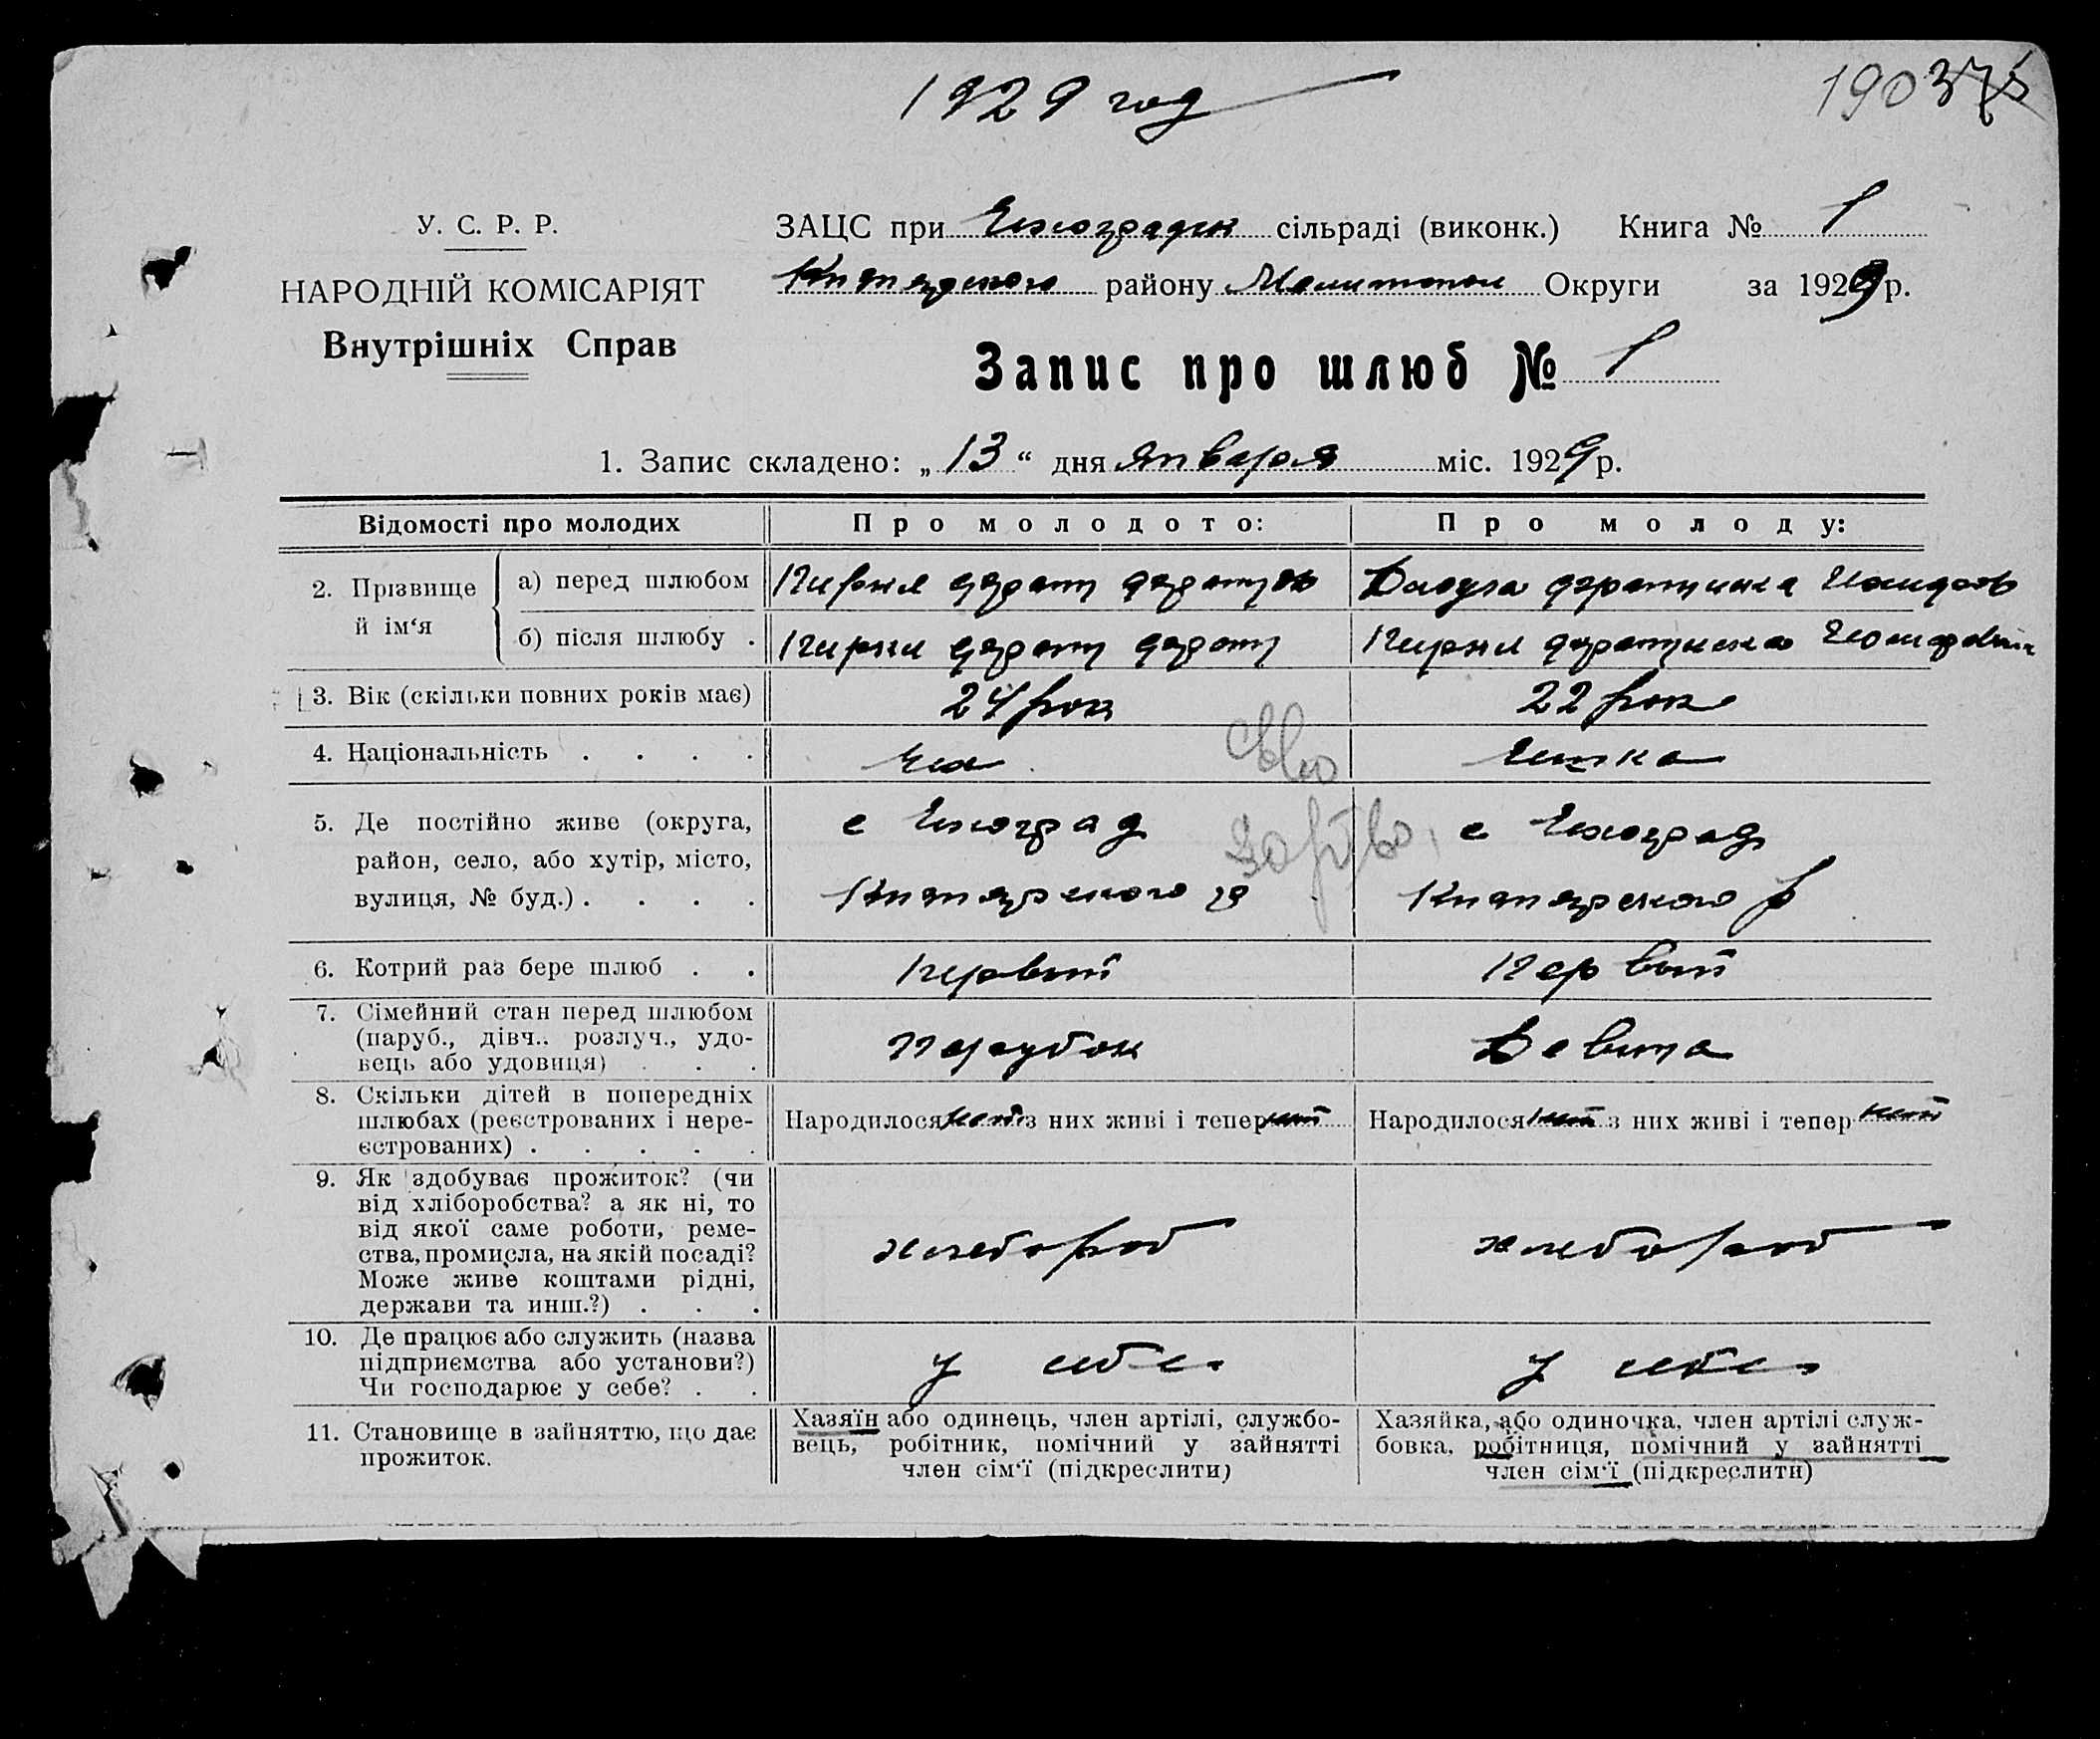 1929 год
190 375
У. С. Р. Р.
НАРОДНІЙ КОМІСАРІЯТ
Внутрішніх Справ
ЗАЦС при Чехоградск сільраді (виконк.) Книга № 1
району Округи за 1929 р.
Запис про шлюб № 1
1. Запис складено: „ 13 “ дня января міс. 1929 р.
Відомості про молодих
Про молодого:
Про молоду:
2. Прізвище й ім‘я
а) перед шлюбом
б) після шлюбу .
3. Вік (скільки повних років має)
24 рок
22 рок
4. Національність . . . .
Чех
Чешка
5. Де постійно живе (округа,
район, село, або хутір, місто,
вулиця, № буд.) . . . .
с Чехоград
с Чехоград
6. Котрий раз бере шлюб . .
Первый
Первый
7. Сімейний стан перед шлюбом
(паруб., дівч.. розлуч., удо-
вець або удовиця) . . .
парубок
Девица
8. Скільки дітей в попередніх
шлюбах (реєстрованих і нере-
єстрованих) . . . . .
Народилося нет з них живі і тепер нет
Народилося нет з них живі і тепер нет
9. Як здобуває прожиток? (чи
від хліборобства? а як ні, то
від якої саме роботи, реме-
ства, промисла, на якій посаді?
Може живе коштами рідні,
держави та инш.?) . . .
хлебороб
хлебороб
10. Де працює або служить (назва
підприємства або установи?)
Чи господарює у себе? . .
у себе
у себе
11. Становище в зайняттю, що дає
прожиток.
Хазяїн або одинець, член артілі, службо-
вець, робітник, помічний у зайнятті
член сім‘ї (підкреслити)
Хазяйка, або одиночка, член артілі служ-
бовка, робітниця, помічний у зайнятті
член сім‘ї (підкреслити)